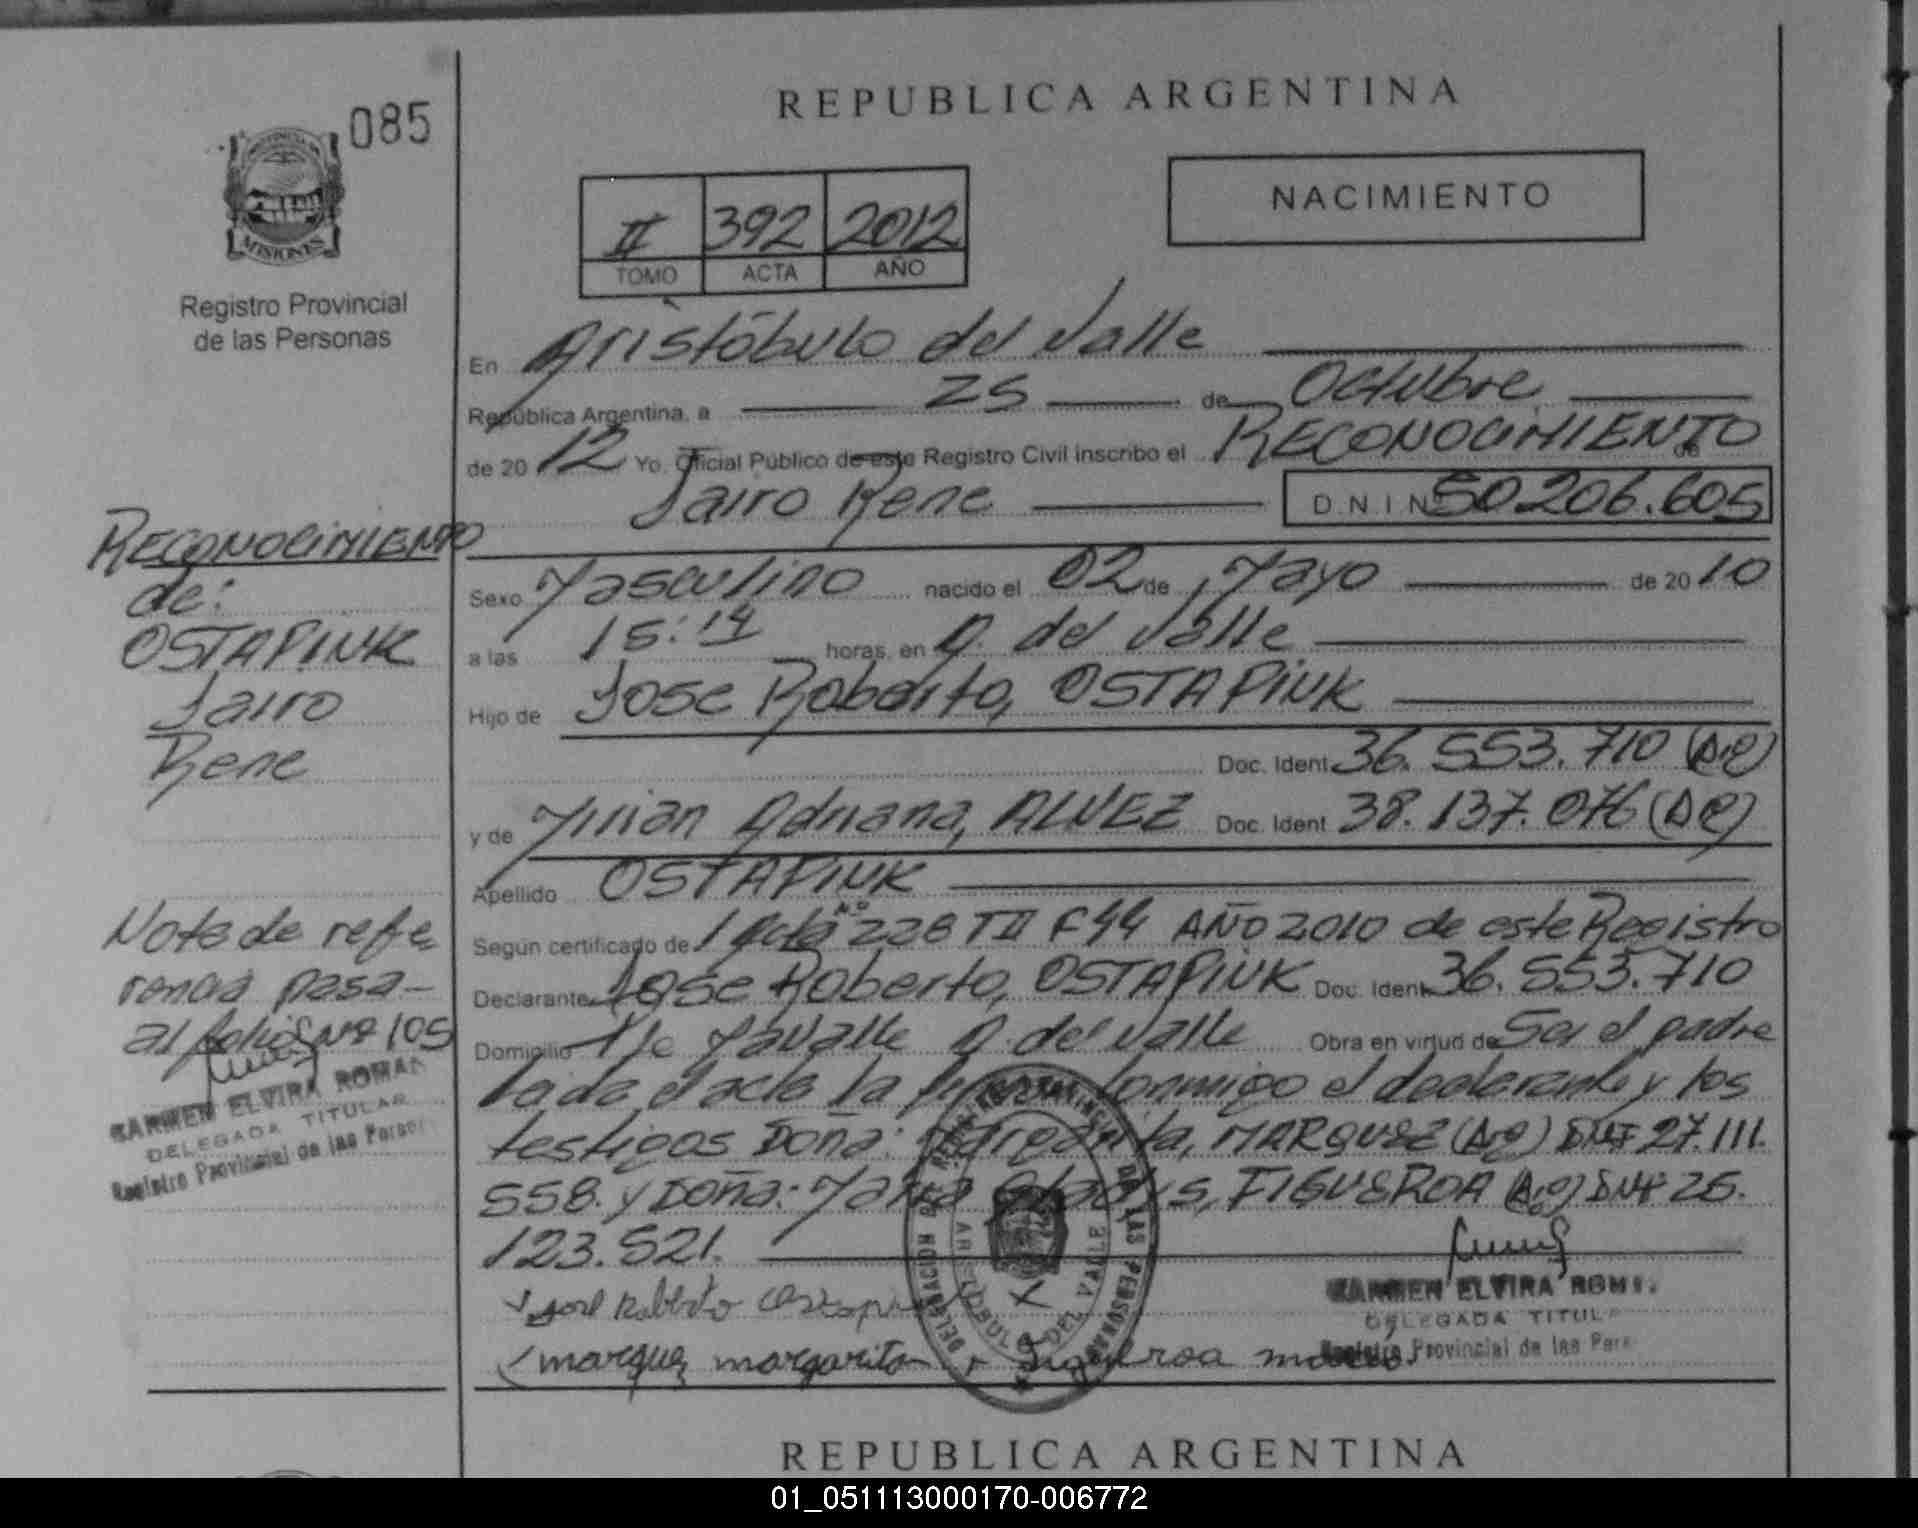 085
MISIONES
Registro Provincial
de las Personas
REPUBLICA ARGENTINA
NACIMIENTO
II 392 2012
TOMO ACTA AÑO
En Aristóbulo del Valle
República Argentina, a 25 de Octubre
de 2012 Yo, Oficial Público de este Registro Civil inscribo el RECONOCIMIENTO de
Jairo Rene D.N.I N 50.206.605
Sexo Masculino nacido el 02 de Mayo de 2010
a las 15:14 horas, en A. del Valle
Hijo de Jose Roberto, OSTAPINK
Doc. Ident 36.553.710 (Arg)
y de Mirian Adriana, ALVEZ Doc. Ident 38.137.076 (Arg)
Apellido OSTAPINK
Según certificado de Acta Nº 228 TII F44 AÑO 2010 de este Registro
Declarante Jose Roberto, OSTAPINK Doc. Ident 36.553.710
Domicilio Lavalle A. del Valle Obra en virtud de Ser el padre
Leida el acta la conmigo el declarante y los
testigos Doña: Margarita, MARQUEZ (Arg) DNI 27.111.
558. y Doña: Gladys, FIGUEROA (Arg) DNI 26.
123.521.
José Roberto
marquez margarita Figueroa
DELEGACION DE REGISTRO PROVINCIAL DE LAS PERSONAS
ARISTOBULO DEL VALLE
CARMEN ELVIRA ROM
DELEGADA TITUL
Registro Provincial de las Pers
RECONOCIMIENTO
de:
OSTAPINK
Jairo
Rene
Nota de refe
rencia pasa-
al folio Nº 105
CARMEN ELVIRA ROMAN
DELEGADA TITULAR
Registro Provincial de las Person
REPUBLICA ARGENTINA
01_051113000170-006772